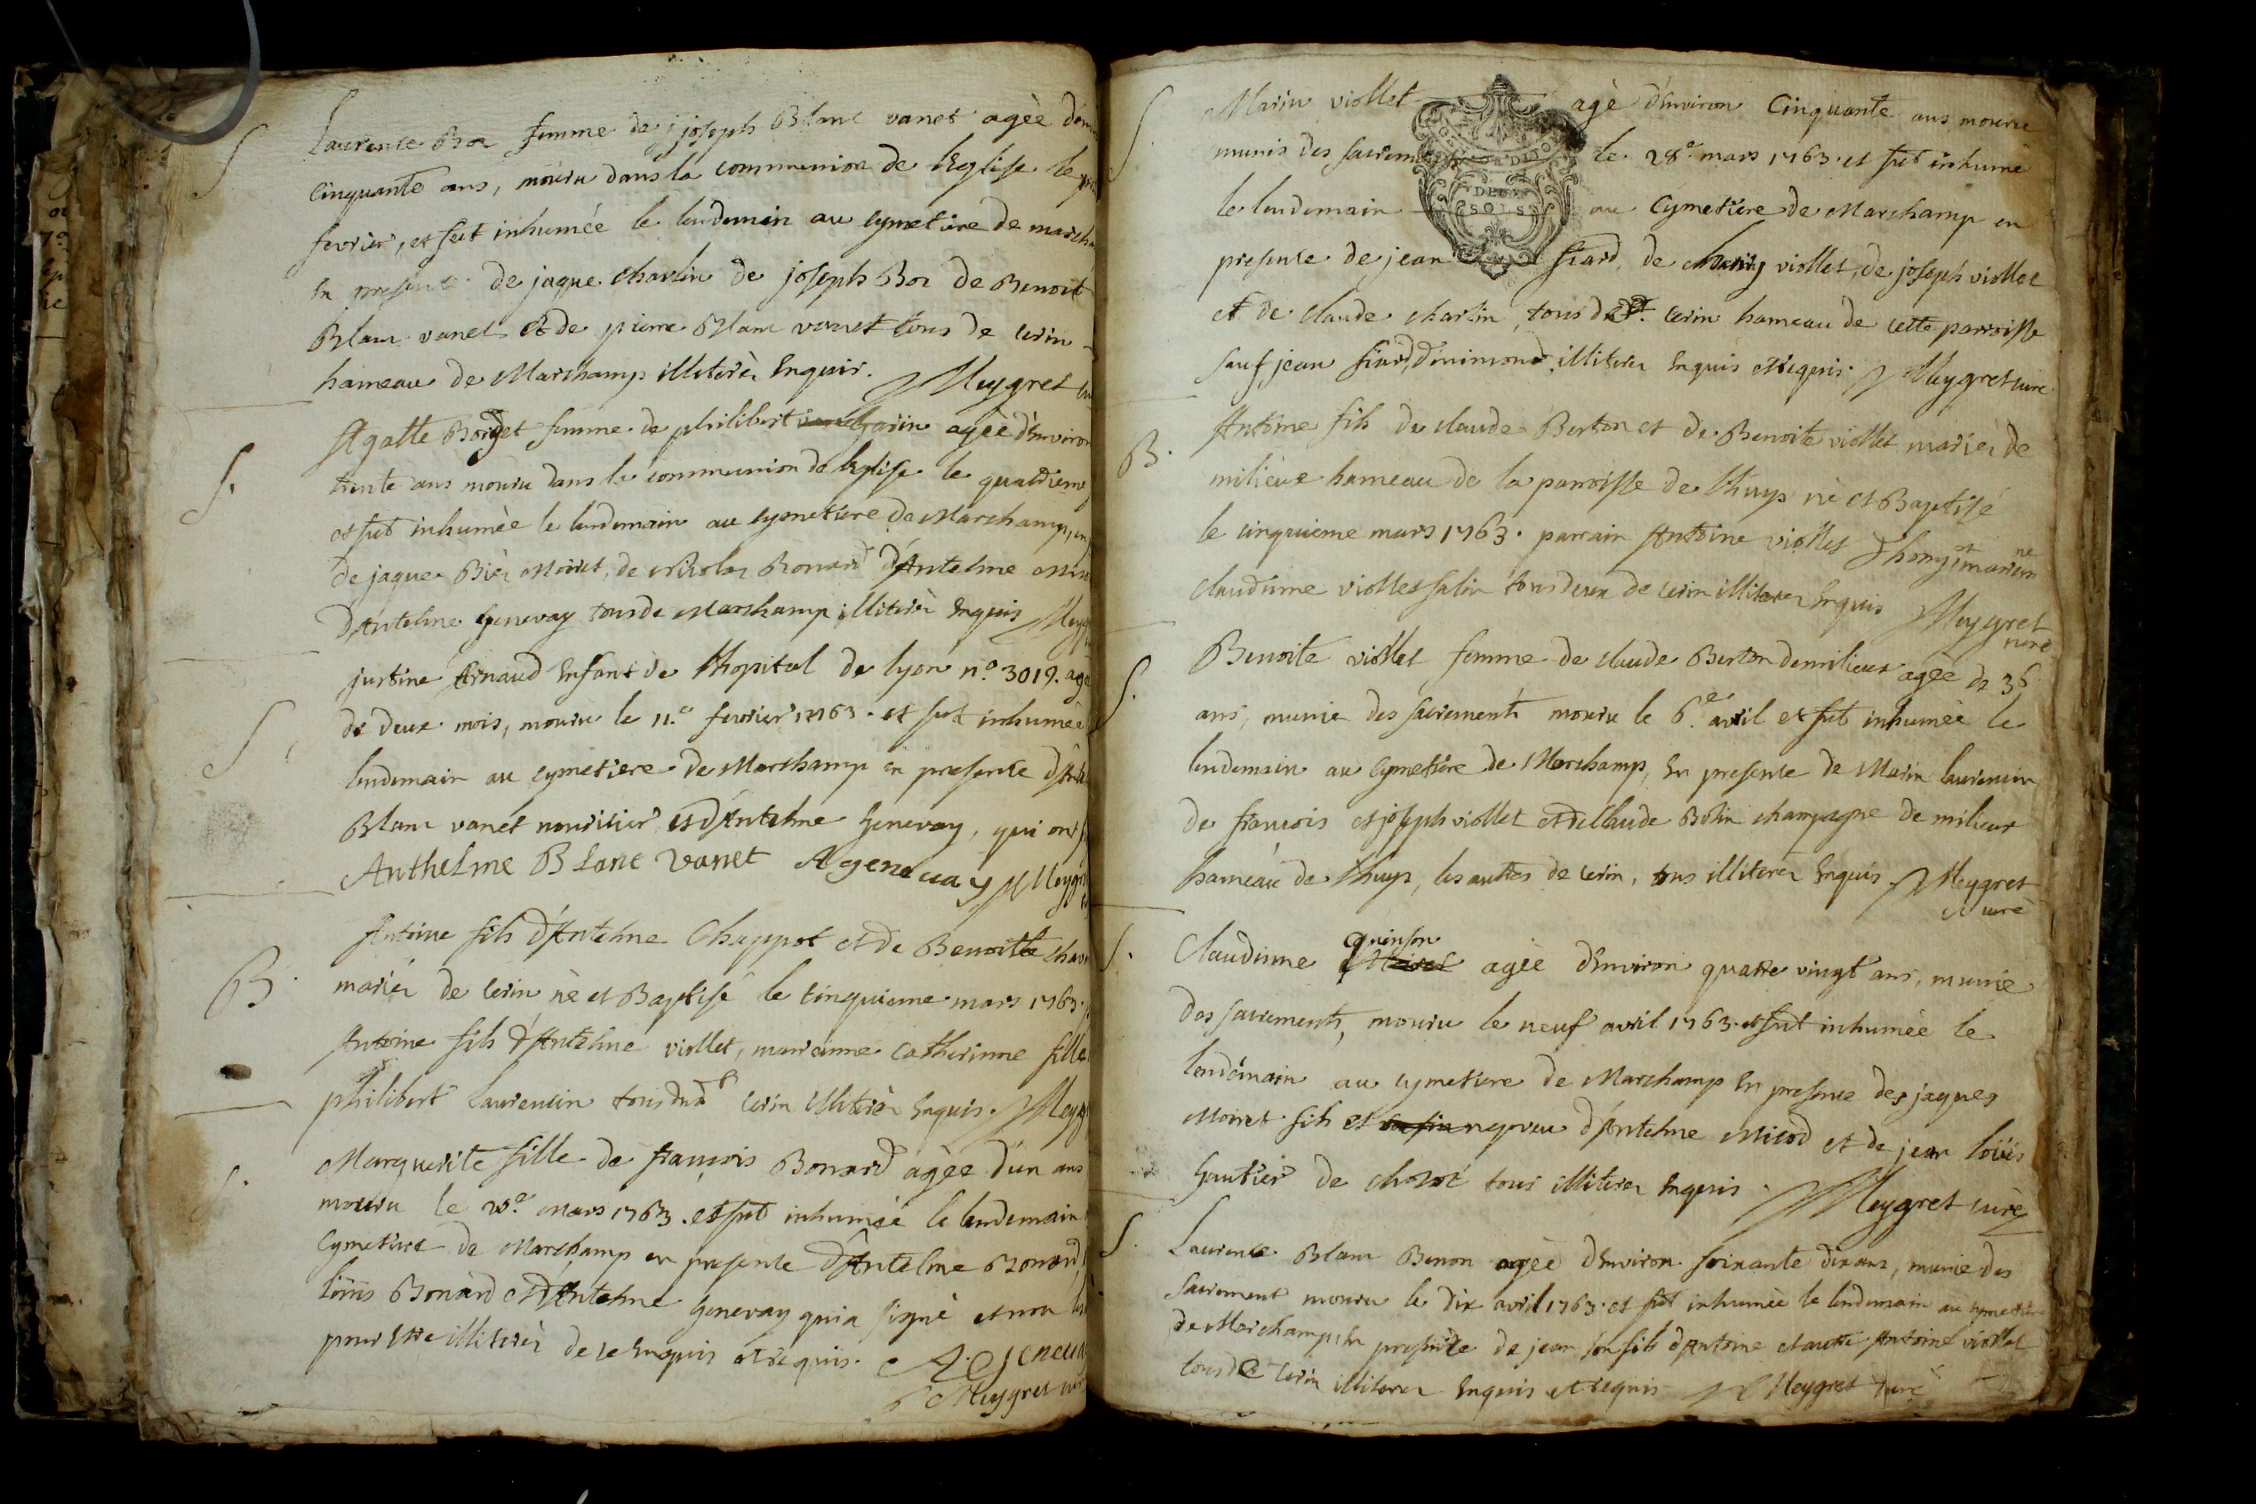 S
Laurence Boz femme de joseph Blanc vanet agèe
Cinquante ans, mouru dans la communion de l'Eglise le
fevrier, et fut inhumée le lendemain au cymetiere de
En presence de jaque charlin de joseph Boz de Benoit
Blanc vanet et de pierre Blanc vanet tous de cerin
hameau de Marchamp illiterès Enquis. Meygret
S.
Agatte Borget femme de philibert agèe d'Environ
trente ans mouru dans la communion de l'Eglise le quatrieme
et fut inhumèe le lendemain au cymetiere de Marchamp, en
de jaque Moiret, de nicolas Bonard d'Antelme
d'Antelme genevay tous de Marchamp illiterès Enquis
S.
justine Arnaud Enfant de l'hopital de lyon n.º 3019. agèe
de deux mois, mouru le 11.e fevrier 1763. et fut inhumèe
lendemain au cymetiere de Marchamp en presence
Blanc vanet nouricier et d'Antelme Genevay, qui ont
Anthelme Blanc Vanet A genevay Meygret
B.
Antoine fils d'Antelme Chappot et de Benoitte
mariés de cerin nè et Baptisé le cinquieme mars 1763.
Antoine fils d'Antelme viollet, marianne catherinne fille
philibert Laurencin tous dud.t cerin illiterès Enquis.
S.
Marguerite fille de françois Bonard agèe d'un ans
mouru le mars 1763. et fut inhumèe le lendemain
Cymetiere de Marchamp en presence d'Antelme Bonard,
loüis Bonard et d'Antelme Genevay qui a signè et non
pour Etre illiterès de ce Enquis et requis. A. Geneva
Meygret
S.
Marin viollet agè d'Environ Cinquante ans mouru
munis des le 28.e mars 1763. et fut inhumè
DEUX
SOLS
le lendemain au Cymetiere de Marchamp en
presence de jean fiard, de viollet, de joseph viollet
et de claude charlin, tous cerin hameau de cette parroisse
sauf jean fiard, illiterès Enquis et requis. Meygret curè
B.
Antoine fils de claude Berton et de Benoite viollet mariès de
milieux hameau de la parroisse de l'huys nè et Baptisé
le cinquieme mars 1763. parrain Antoine viollet
claudinne viollet salin tous deux de cerin illiterès Enquis Meygret
curè
S.
Benoite viollet femme de claude Berton de milieux agèe de 36
ans, munie des sacrements mouru le 6.e avril et fut inhumèe le
lendemain au Cymetiere de Marchamp, En presence de Marin laurencin
de francois et joseph viollet et de claude champagne de milieux
hameau de l'huys, les autres de cerin, tous illiterès Enquis. Meygret
curè
S.
Claudinne quinson agèe d'Environ quatre vingt ans, munie
des sacrements, mouru le neuf avril 1763. et fut inhumèe le
lendemain au cymetiere de Marchamp En presence des jaques
Moiret fils et neyveu d'Antelme Micod et de jean loüis
Gautier de tous illiterès Enquis. Meygret curè
S.
Laurence Blanc Benon agèe d'Environ soixante dix ans, munie des
sacrement mouru le dix avril 1763. et fut inhumèe le lendemain au cymetiere
de Marchamp, En presence de jean son fils d'Antoine et autre Antoine viollet
tous de cerin illiterès Enquis et requis Meygret curè